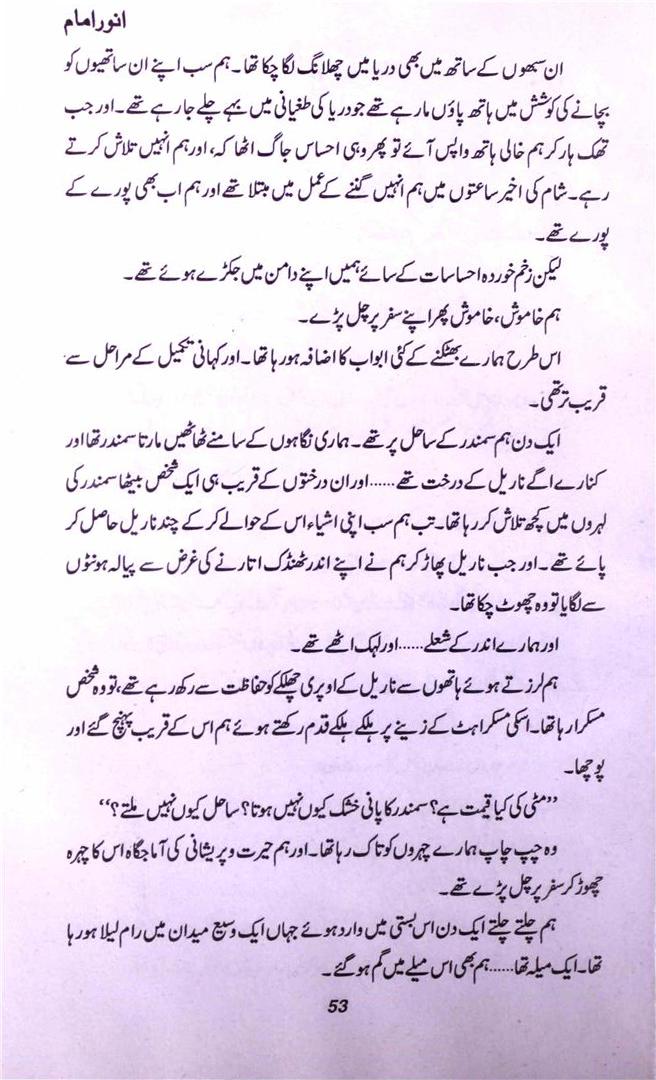 انور امام
ان سبھوں کے ساتھ میں بھی دریا میں چھلانگ لگا چکا تھا۔ ہم سب اپنے ان ساتھیوں کو
بچانے کی کوشش میں ہاتھ پاؤں مار رہے تھے جو دریا کی طغیانی میں بہے چلے جا رہے تھے۔ اور جب
تھک ہار کر ہم خالی ہاتھ واپس آئے تو پھر وہی احساس جاگ اٹھا کہ، اور ہم انہیں تلاش کرتے
رہے۔ شام کی اخیر ساعتوں میں ہم انہیں گننے کے عمل میں مبتلا تھے اور ہم اب بھی پورے کے
پورے تھے۔
لیکن زخم خوردہ احساسات کے سائے ہمیں اپنے دامن میں جکڑے ہوئے تھے۔
ہم خاموش، خاموش پھر اپنے سفر پر چل پڑے۔
اس طرح ہمارے بھٹکنے کے کئی ابواب کا اضافہ ہو رہا تھا۔ اور کہانی تکمیل کے مراحل سے
قریب تر تھی۔
ایک دن ہم سمندر کے ساحل پر تھے۔ ہماری نگاہوں کے سامنے ٹھاٹھیں مارتا سمندر تھا اور
کنارے اگے ناریل کے درخت تھے......اور ان درختوں کے قریب ہی ایک شخص بیٹھا سمندر کی
لہروں میں کچھ تلاش کر رہا تھا۔ تب ہم سب اپنی اشیاء اس کے حوالے کر کے چند ناریل حاصل کر
پائے تھے۔ اور جب ناریل پھاڑ کر ہم نے اپنے اندر ٹھنڈک اتارنے کی غرض سے پیالہ ہونٹوں
سے لگایا تو وہ چھوٹ چکا تھا۔
اور ہمارے اندر کے شعلے......اور لہک اٹھے تھے۔
ہم لرزتے ہوئے ہاتھوں سے ناریل کے اوپری چھلکے کو حفاظت سے رکھ رہے تھے، تو وہ شخص
مسکرا رہا تھا۔ اسکی مسکراہٹ کے زینے پر ہلکے ہلکے قدم رکھتے ہوئے ہم اس کے قریب پہنچ گئے اور
پوچھا۔
”مٹی کی کیا قیمت ہے؟ سمندر کا پانی خشک کیوں نہیں ہوتا؟ ساحل کیوں نہیں ملتے؟“
وہ چپ چاپ ہمارے چہروں کو تاک رہا تھا۔ اور ہم حیرت و پریشانی کی آماجگاہ اس کا چہرہ
چھوڑ کر سفر پر چل پڑے تھے۔
ہم چلتے چلتے ایک دن اس بستی میں وارد ہوئے جہاں ایک وسیع میدان میں رام لیلا ہو رہا
تھا۔ ایک میلہ تھا......ہم بھی اس میلے میں گم ہو گئے۔
53